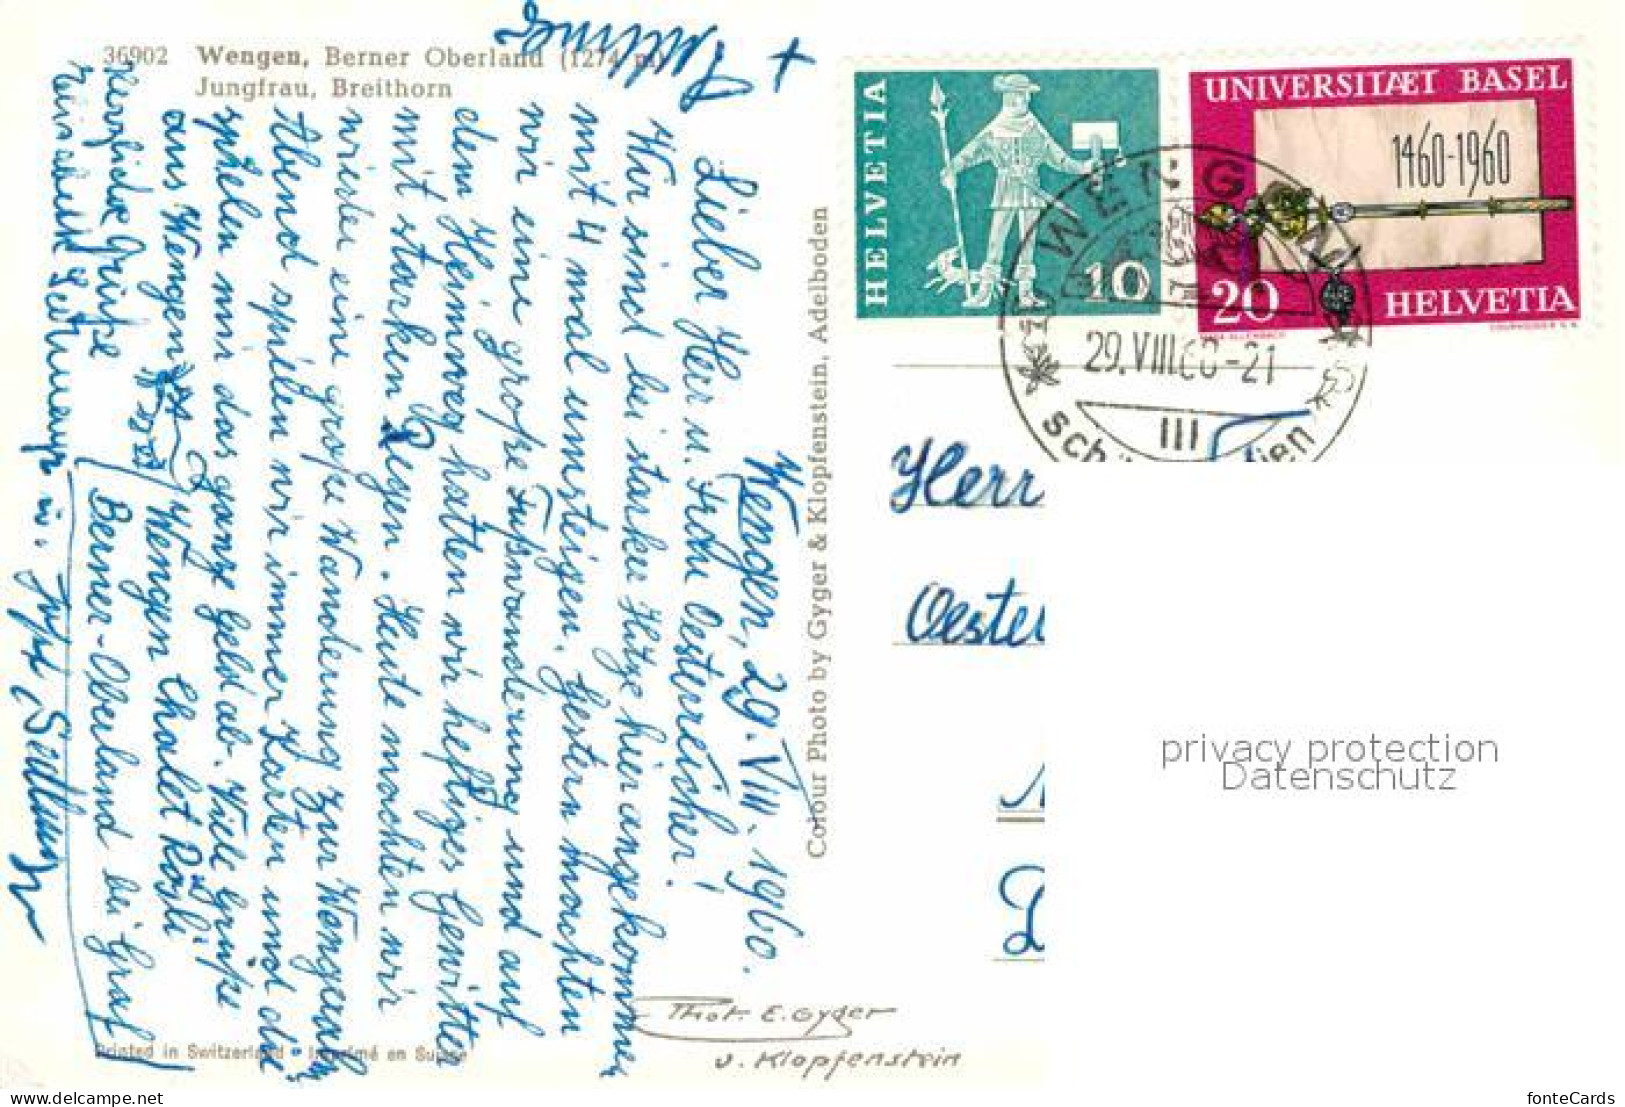 36902 Wengen, Berner Oberland (1274 m)
Jungfrau, Breithorn
Wengen, 29. VIII. 1960.
Lieber Herr u. Frau Oesterreicher!
Wir sind bei starker Hitze hier angekommen
mit 4 mal umsteigen. Gestern machten
wir eine große Fußwanderung und auf
dem Heimweg hatten wir heftiges Gewitter
mit starken Regen. Heute machten wir
wieder eine große Wanderung zur Wengeralp
Abend spielen wir immer Karten und die
spielen mir das ganze Geld ab. Viele Grüße
aus Wengen
Wengen Chalet Rösli
Berner-Oberland bei Graf
Herzliche Grüße
Colour Photo by Gyger & Klopfenstein, Adelboden
Printed in Switzerland • Imprimé en Suisse
Phot. E. Gyger
u. Klopfenstein
HELVETIA
10
UNIVERSITAET BASEL
1460-1960
20
HELVETIA
WENGEN
29.VIII.60-21
III
Herr
Oester
privacy protection
Datenschutz
www.delcampe.net
fonteCards